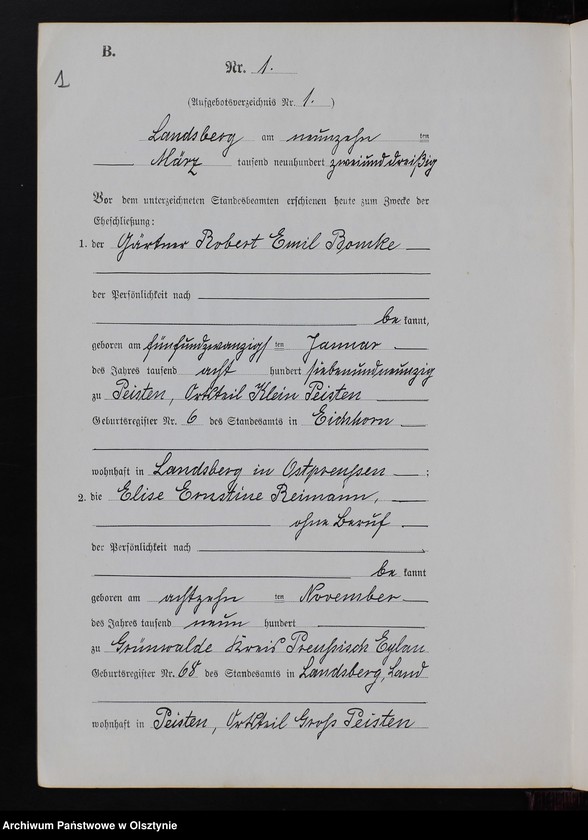 B.
1
Nr. 1.
(Aufgebotsverzeichnis Nr. 1. )
Landsberg am neunzehn ten
März tausend neunhundert zweiunddreißig
Vor dem unterzeichneten Standesbeamten erschienen heute zum Zwecke der
Eheschließung:
1. der Gärtner Robert Emil Bomke
der Persönlichkeit nach
be kannt,
geboren am fünfundzwanzigs ten Januar
des Jahres tausend acht hundert siebenundneunzig
zu Peisten, Ortsteil Klein Peisten
Geburtsregister Nr. 6 des Standesamts in Eichhorn
wohnhaft in Landsberg in Ostpreußen ;
2. die Elise Ernstine Reimann,
ohne Beruf
der Persönlichkeit nach
be kannt
geboren am achtzehn ten November
des Jahres tausend neun hundert
zu Grünwalde Kreis Preußisch Eylau
Geburtsregister Nr. 68 des Standesamts in Landsberg, Land
wohnhaft in Peisten, Ortsteil Groß Peisten
Archiwum Państwowe w Olsztynie